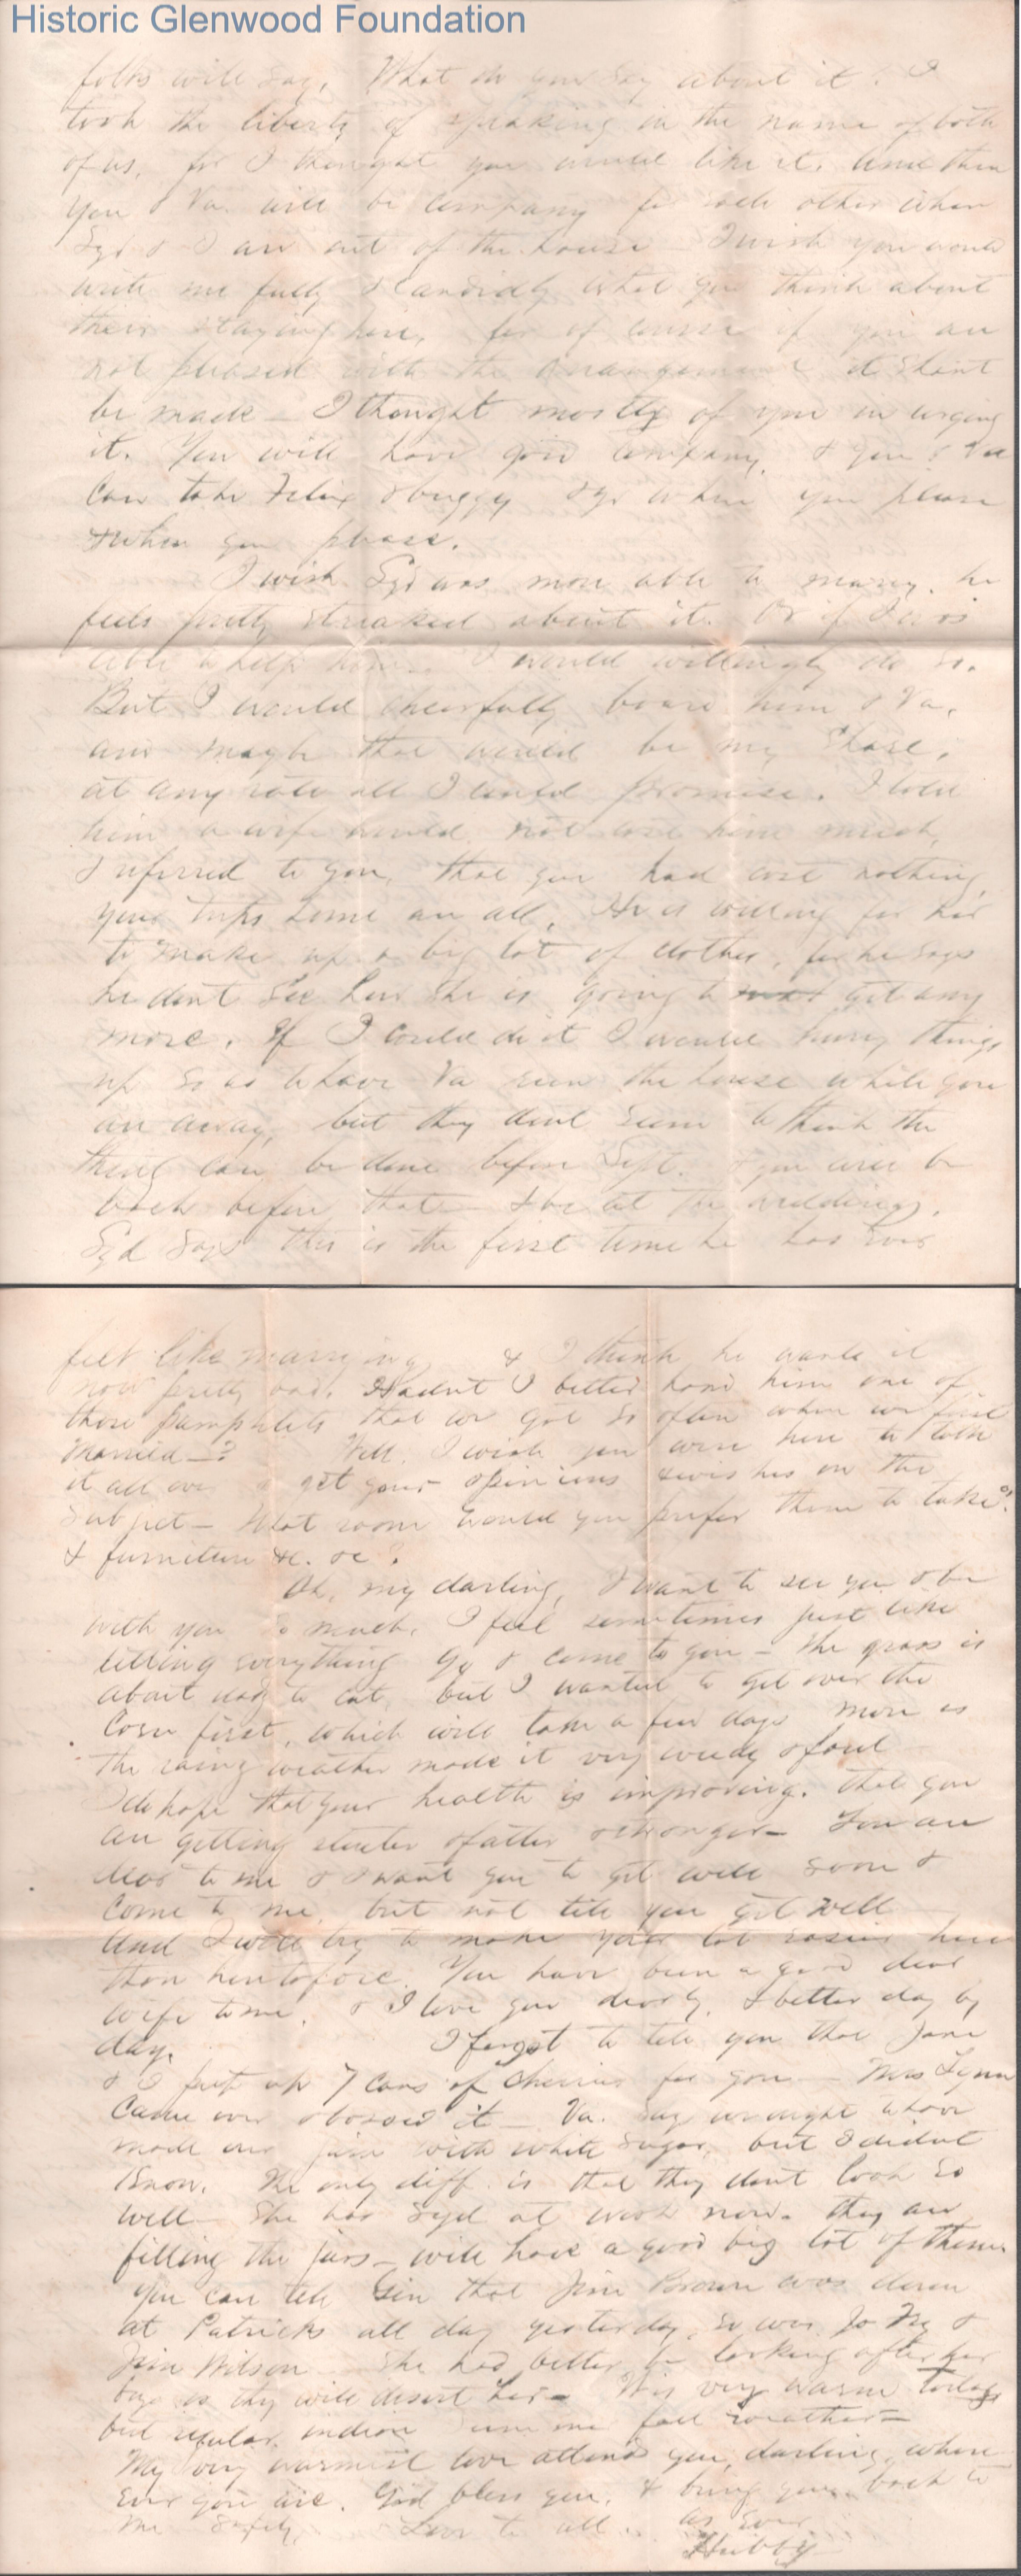 Historic Glenwood Foundation
folks will say. What do you say about it? I
took the liberty of speaking in the name of both
of us, for I thought you would like it. And then
you & Va. will be company for each other when
Syd & I are out of the house I wish you would
write me fully & candidly what you think about
their staying here, for of course if you are
not pleased with the arrangement it shant
be made — I thought mostly of you in urging
it. You will have good company, & you & Va
can take Felix & buggy & go where you please
& when you please.
I wish Syd was more able to marry. he
feels pretty streaked about it. Or if I was
able to help him. I would willingly do so.
But I would cheerfully board him & Va.
and maybe that would be my share,
at any rate all I could promise. I told
him a wife would not cost him much,
I referred to you, that you had cost nothing,
your trips home are all. He is waiting for her
to make up a big lot of clothes, for he says
he dont see how she is going to get any
more. If I could do it I would hurry things
up so as to have Va run the house while you
are away, but they dont seem to think the
thing can be done before Sept. & you will be
back before that — & be at the wedding.
Syd says this is the first time he has ever
felt like marrying & I think he wants it
now pretty bad. Hadnt I better hand him one of
those pamphlets that we got so often when we first
married —? Well, I wish you were here to talk
it all over & get your opinions & wishes on the
subject — What room would you prefer them to take?
& furniture &c. &c?
Oh, my darling, I want to see you & be
with you so much. I feel sometimes just like
letting everything go & come to you — The grass is
about ready to cut, but I wanted to get over the
corn first, which will take a few days more as
the rainy weather made it very weedy & foul
I do hope that your health is improving. That you
are getting stouter & fatter & stronger — You are
dear to me & I want you to get well soon &
come to me, but not till you get well
And I will try to make your lot easier here
than heretofore. You have been a good dear
wife to me, & I love you dearly, & better day by
day. I forgot to tell you that Jane
& I put up 7 cans of cherries for you — Mrs Lynn
came over & bossed it — Va. says we ought to have
made our jam with white sugar, but I didnt
know. The only diff. is that they dont look so
well She has Syd at work now. they are
filling the jars — will have a good big lot of them
You can tell Gin that Jim Brown was down
at Patricks all day yesterday, so was Jo &
Jim Wilson She had better be looking after her
boys as they will desert her — It is very warm today
but regular indian summer fall weather —
My very warmest love attend you, darling, where
ever you are. God bless you, & bring you back to
me safely. Love to all. as ever
Hubby